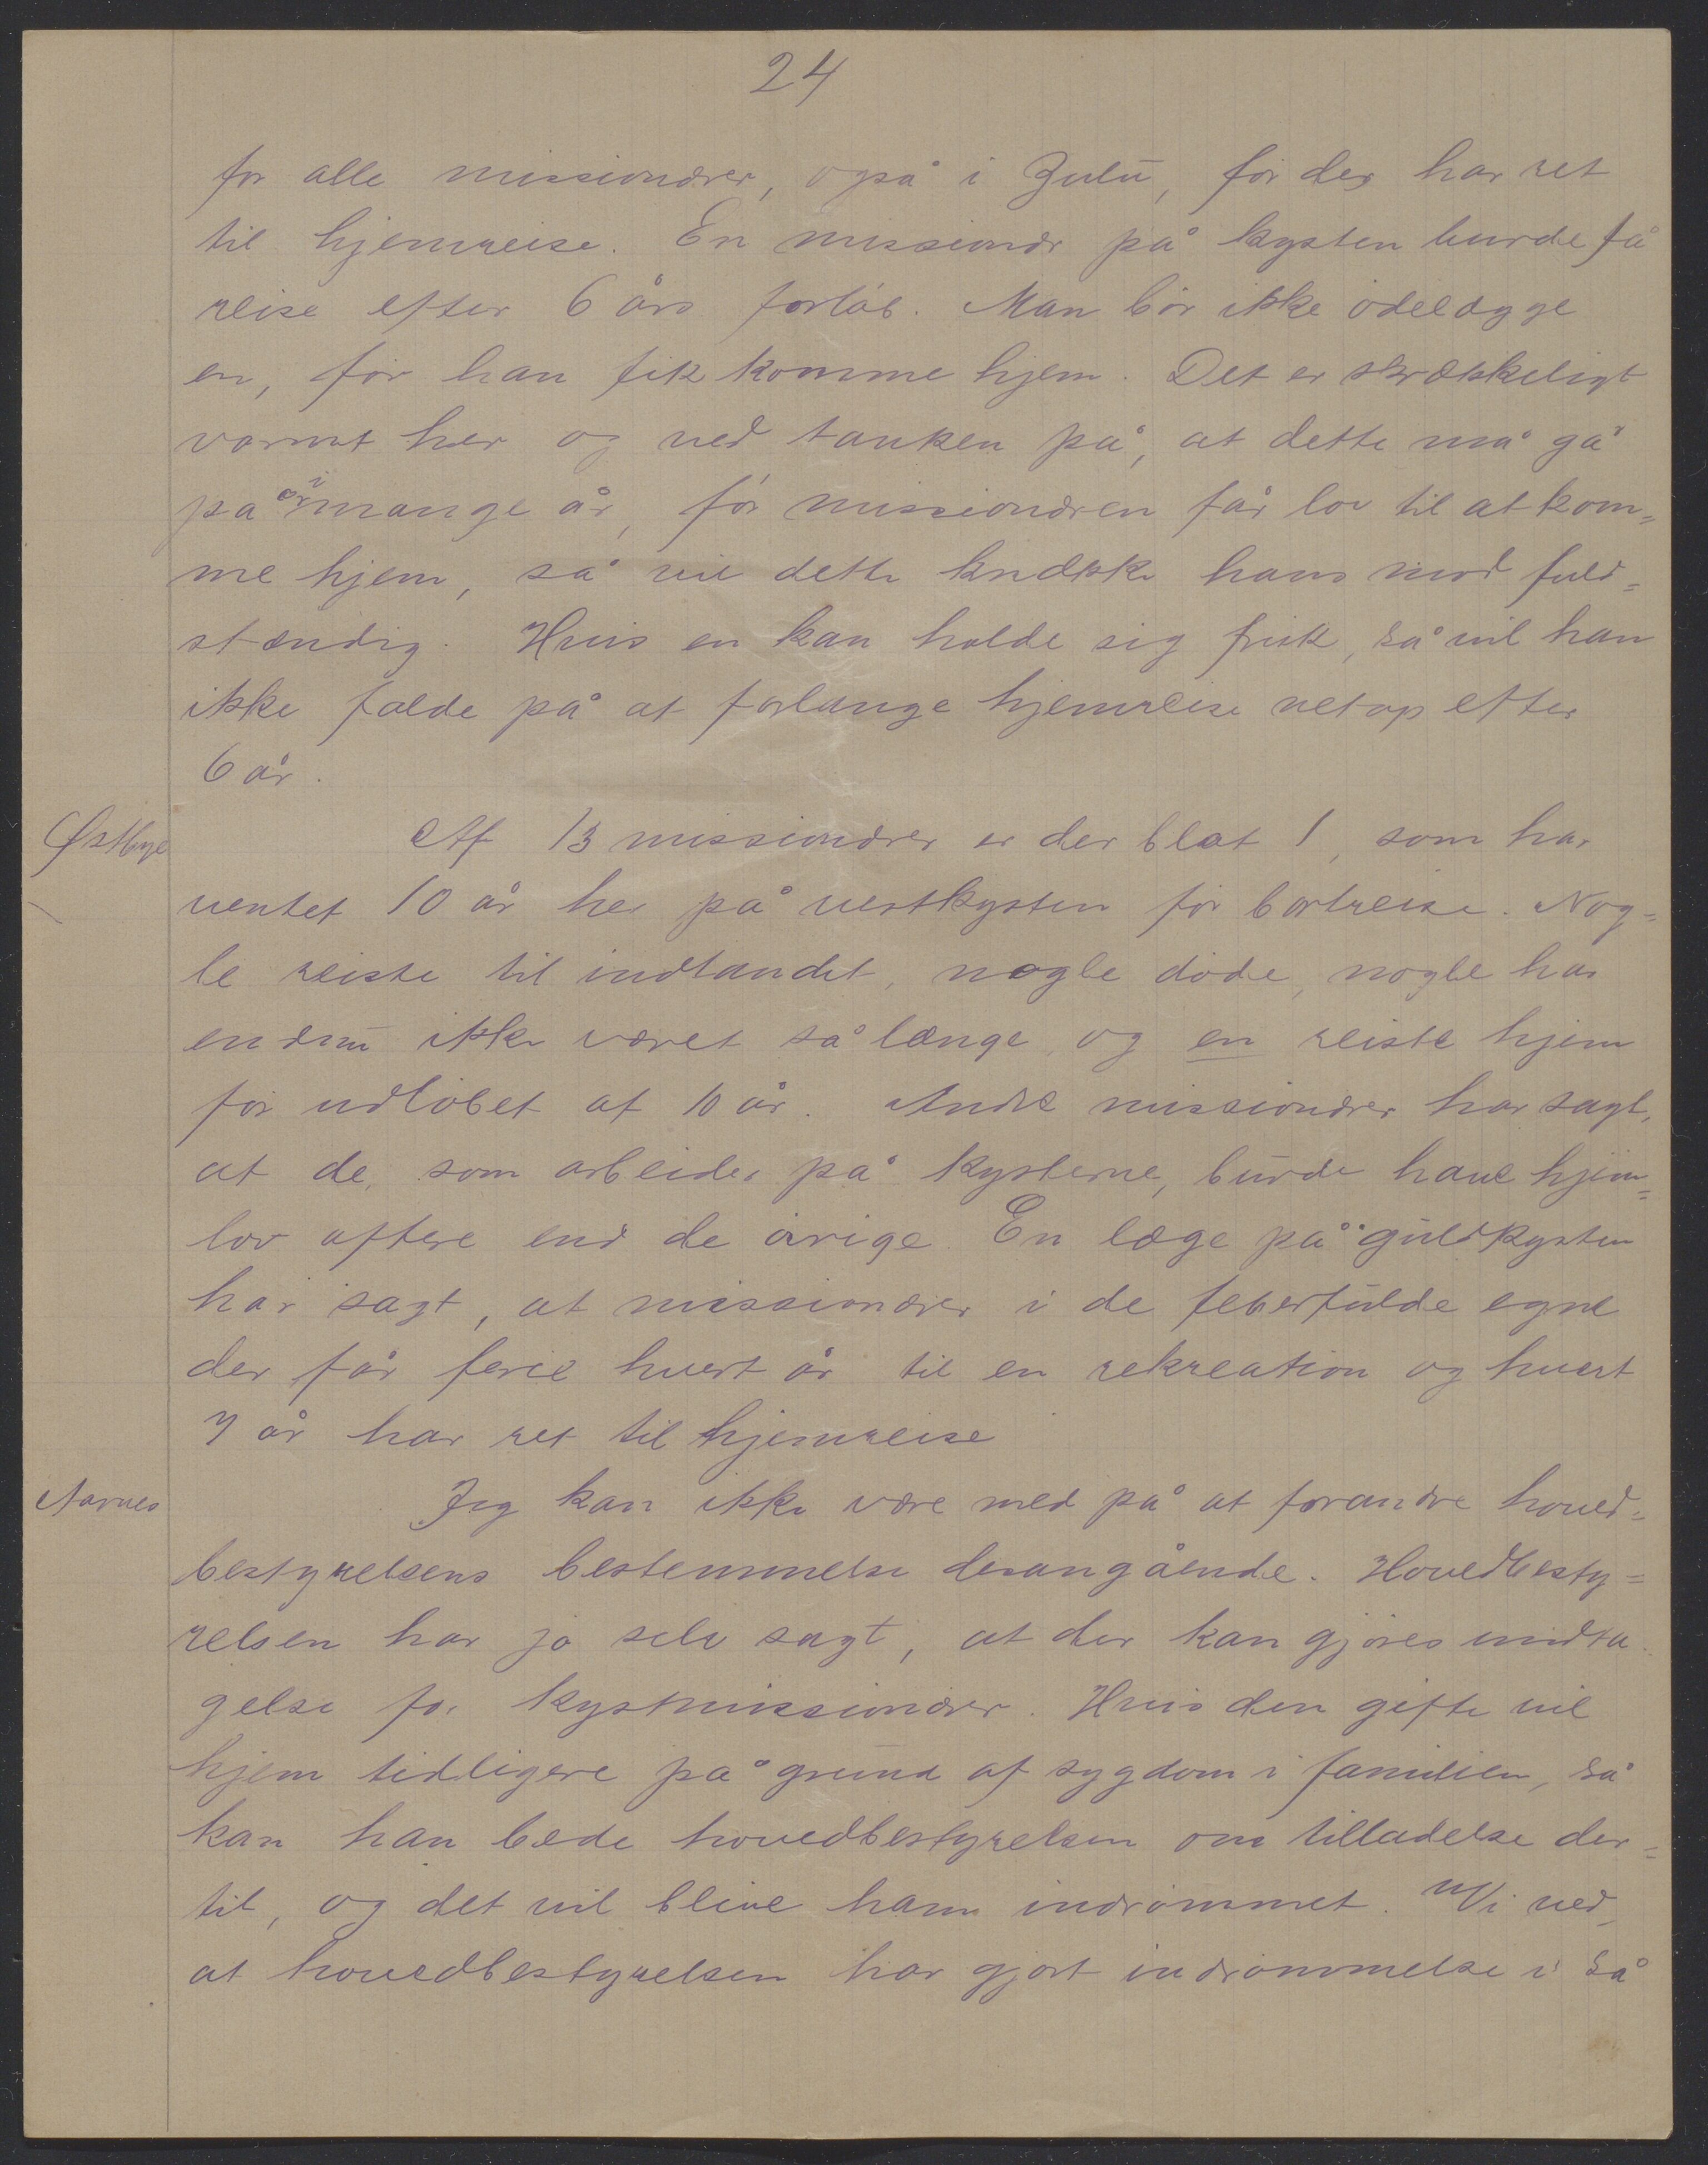 24
for alle missionærer, også i Zulu, før der har ret
til hjemreise. En missionær på kysten burde få
reise efter 6 års forløb. Man bør ikke ødelægge
en, før han fik komme hjem. Det er skrækkeligt
varmt her og ved tanken på, at dette må gå
på i mange år, før missionæren får lov til at kom=
me hjem, så vil dette knække hans mod fuld=
stændig. Hvis en kan holde sig frisk, så vil han
ikke falde på at forlange hjemreise netop efter
6 år.
Østbye
Af 13 missionærer er der blot 1, som har
ventet 10 år her på vestkysten før bortreise. Nog=
le reiste til indlandet, nogle døde, nogle har
endnu ikke været så længe, og en reiste hjem
før udløbet af 10 år. Andre missionærer har sagt,
at de, som arbeider på kysterne, burde have hjem=
lov oftere end de øvrige. En læge på guldkysten
har sagt, at missionærer i de feberfulde egne
der får ferie hvert år til en rekreation og hvert
7 år har ret til hjemreise
Aarnes
Jeg kan ikke være med på at forandre hoved=
bestyrelsens bestemmelse desangående. Hovedbesty=
relsen har jo selv sagt, at der kan gjøres undta
gelse for kystmissionærer. Hvis den gifte vil
hjem tidligere på grund af sygdom i familien, så
kan han bede hovedbestyrelsen om tilladelse der=
til, og det vil blive ham indrømmet. Vi ved,
at hovedbestyrelsen har gjort indrømmelse i så